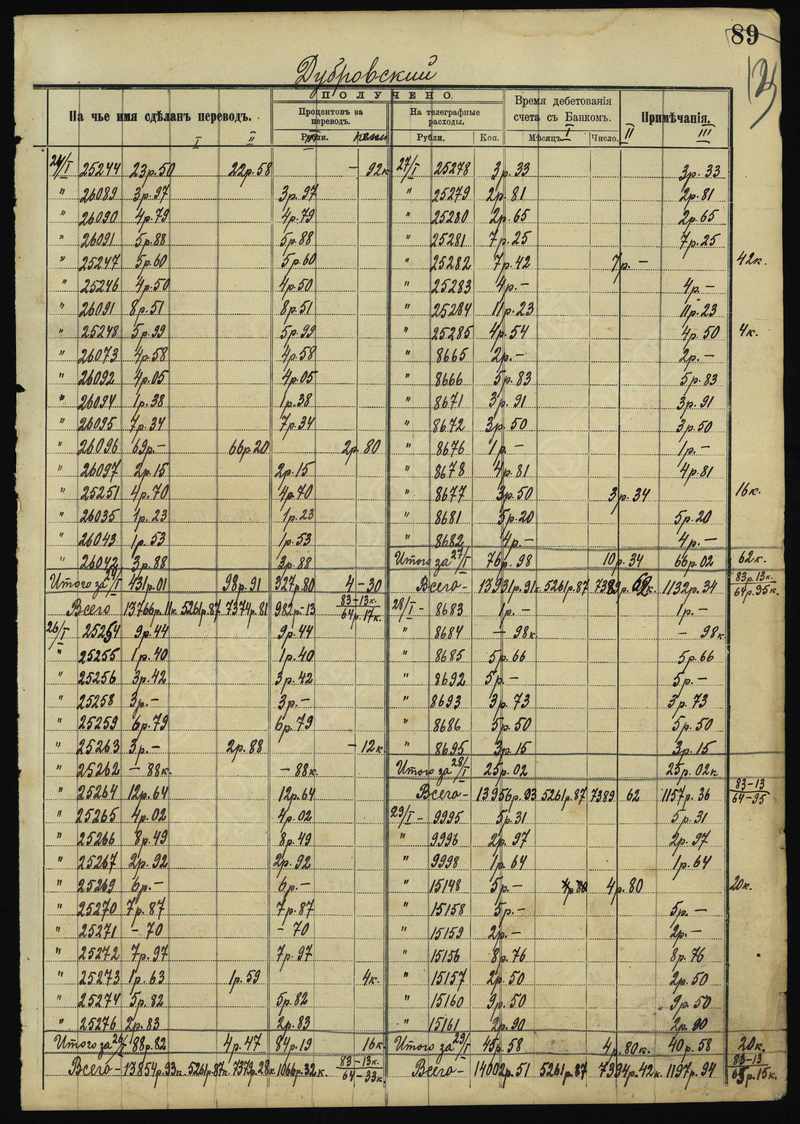 89
12
Дубровскій
ПОЛУЧЕНО
На чье имя сдѣланъ переводъ.
I II
Процентовъ за переводъ.
Рубли.
На телеграфные расходы.
Рубли. Коп.
Время дебетованія счета съ Банкомъ.
Мѣсяцъ I Число. II
Примѣчанія.
III
24/I 25244 23р.50 22р.58 — 92к
" 26089 3р.97 3р.97
" 26090 4р.79 4р.79
" 26091 5р.88 5р.88
" 25247 5р.60 5р.60
" 25246 4р.50 4р.50
" 26091 8р.51 8р.51
" 25248 5р.99 5р.99
" 26073 4р.58 4р.58
" 26092 4р.05 4р.05
" 26094 1р.38 1р.38
" 26095 7р.34 7р.34
" 26096 69р.— 66р.20 2р.80
" 26097 2р.15 2р.15
" 25251 4р.70 4р.70
" 26035 1р.23 1р.23
" 26043 1р.53 1р.53
" 26042 3р.88 3р.88
Итого за 24/I 431р.01 98р.91 327р.80 4—30
Всего 13766р.11к. 5261р.87 7374р.81 982р—13 83—13к. 64р.17к.
26/I 25254 9р.44 9р.44
" 25255 1р.40 1р.40
" 25256 3р.42 3р.42
" 25258 3р.— 3р.—
" 25259 6р.79 6р.79
" 25263 3р.— 2р.88 — 12к.
" 25262 — 88к. — 88к.
" 25264 12р.64 12р.64
" 25265 4р.02 4р.02
" 25266 8р.49 8р.49
" 25267 2р.92 2р.92
" 25269 6р.— 6р.—
" 25270 7р.87 7р.87
" 25271 — 70 — 70
" 25272 7р.97 7р.97
" 25273 1р.63 1р.59 4к.
" 25274 5р.82 5р.82
" 25276 2р.83 2р.83
Итого за 26/I 88р.82 4р.47 84р.19 16к.
Всего — 13854р.93к. 5261р.87к. 7379р.28к. 1066р.32к. 83—13к. 64—33к.
27/I 25278 3р.33 3р.33
" 25279 2р.81 2р.81
" 25280 2р.65 2р.65
" 25281 7р.25 7р.25
" 25282 7р.42 7р.— 42к.
" 25283 4р.— 4р.—
" 25284 11р.23 11р.23
" 25285 4р.54 4р.50 4к.
" 8665 2р.— 2р.—
" 8666 5р.83 5р.83
" 8671 3р.91 3р.91
" 8672 3р.50 3р.50
" 8676 1р.— 1р.—
" 8678 4р.81 4р.81
" 8677 3р.50 3р.34 16к.
" 8681 5р.20 5р.20
" 8682 4р.— 4р.—
Итого за 27/I 76р.98 10р.34 66р.02 62к.
Всего — 13931р.91к. 5261р.87 7389р.62к. 1132р.34 83р.13к. 64р.95к.
28/I — 8683 1р.— 1р.—
" 8684 — 98к — 98к.
" 8685 5р.66 5р.66
" 8692 5р.— 5р.—
" 8693 3р.73 3р.73
" 8686 5р.50 5р.50
" 8695 3р.15 3р.15
Итого за 28/I 25р.02 25р.02к
Всего — 13956р.93 5261р.87 7389 62 1157р.36 83—13 64—95
29/I — 9995 5р.31 5р.31
" 9996 2р.97 2р.97
" 9998 1р.64 1р.64
" 15148 5р.— 4р.80 4р.80 20к.
" 15158 5р.— 5р.—
" 15159 2р.— 2р.—
" 15156 8р.76 8р.76
" 15157 2р.50 2р.50
" 15160 9р.50 9р.50
" 15161 2р.90 2р.90
Итого за 29/I 45р.58 4р.80к. 40р.58 20к.
Всего — 14002р.51 5261р.87 7394р.42к. 1197р.94 83—13 65р.15к.